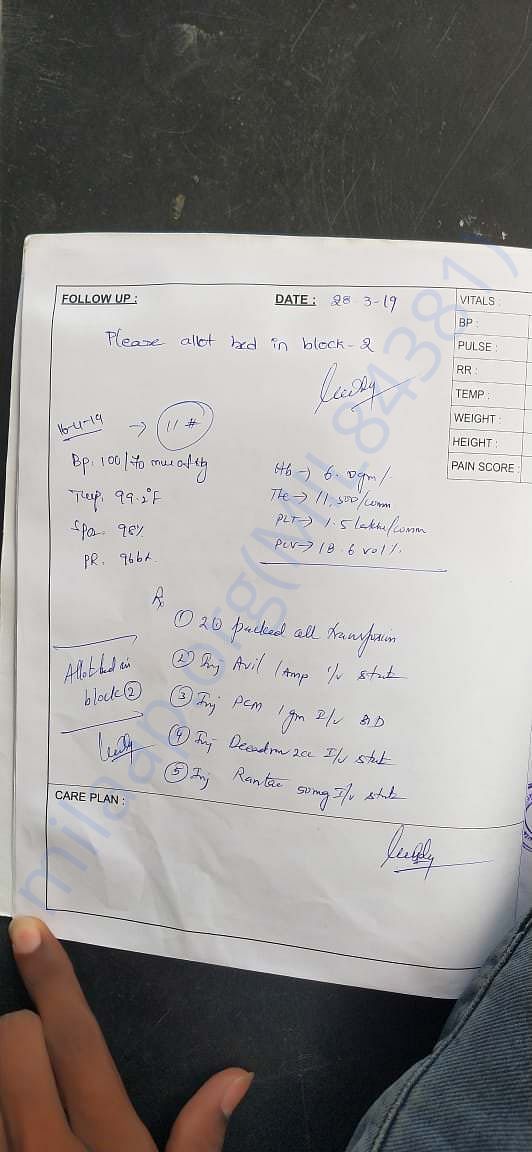 FOLLOW UP :
DATE : 28-3-19
VITALS :
BP :
PULSE :
RR :
TEMP :
WEIGHT :
HEIGHT :
PAIN SCORE :
Please allot bed in block-2
16-4-19 → 11 #
Bp. 100/70 mm of Hg
Temp. 99.2°F
Spo2. 98%
PR. 96bt.
Hb → 6.0gm%
Tlc → 11,500/comm
PLT → 1.5 lakhs/comm
PCV → 18.6 vol%
Rx
① 2 packed cell transfusion
② Inj Avil 1Amp I/v stat
③ Inj PCM 1gm I/v
④ Inj Decadron 2cc I/v stat
⑤ Inj Rantac 50mg I/v stat
Allot bed in
block ②
CARE PLAN :
milaap.org(MIL84381)